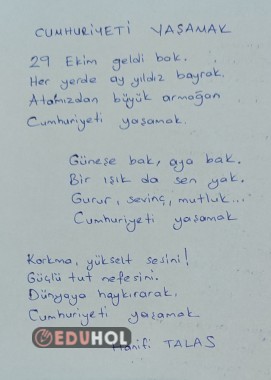 CUMHURİYETİ YAŞAMAK
29 Ekim geldi bak.
Her yerde ay yıldız bayrak.
Atamızdan büyük armağan
Cumhuriyeti yaşamak.
Güneşe bak, aya bak.
Bir ışık da sen yak.
Gurur, sevinç, mutluk...
Cumhuriyeti yaşamak
Korkma, yükselt sesini!
Güçlü tut nefesini.
Dünyaya haykırarak.
Cumhuriyeti yaşamak
EDUHOL
Hanifi TALAS